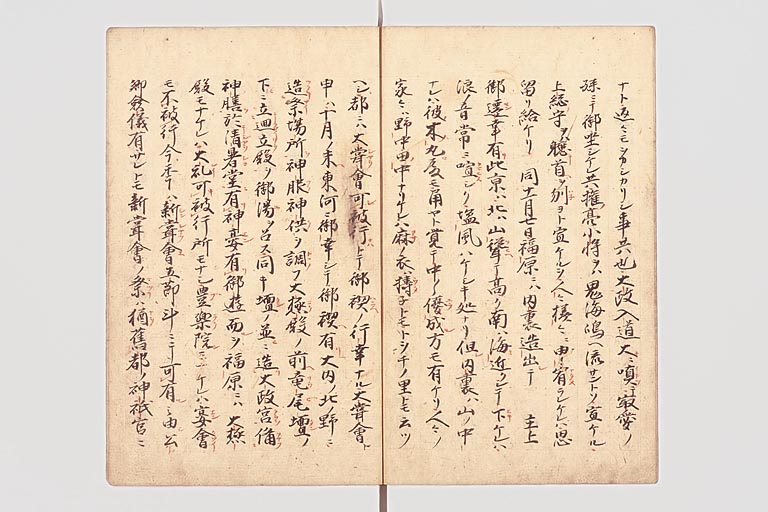 ナト返々モシカシカリシ事共也大政入道大ニ嗔テ寂愛ノ
孫ニテ御坐シケレ共権亮少将ヲハ鬼海嶋ヘ流サントソ宣ケル
上総守ヲハ首ヲ別ヨト宣ケルヲ人々様々ニ申宥ラケレハ思
留リ給ケリ 同十一月廿日福原ニハ内裏造出シテ 主上
御遷幸有此京ハ北ハ山聳テ高ク南ハ海近クシテ下ケレハ
浪ノ音常ニ喧シク塩風ハケシキ処ナリ但内裏ハ山ノ中
ナレハ彼木丸殿モ角ヤト覚テ中々優成方モ有ケリ人々ノ
家々ハ野中田中ナリケレハ麻ノ衣ハ擣ネトモトヲチノ里トモ云ツ
ヘシ都ニハ大嘗會可被行トテ御禊ノ行幸ナル大嘗會ト
申ハ十月ノ末東河ニ御幸シテ御禊有大内ノ北ノ野ニ
造祭場所神服神供ヲ調フ大極殿ノ前竜尾壇ノ
下ニ立廻立殿ヲ御湯ヲ召ス同キ壇ノ並ニ造大政宮備
神膳於清暑堂有神宴有御遊而ヲ福原ニハ大極
殿モナケレハ大礼可被行所モナシ豊樂院モナケレハ宴會
モ不被行今季ハ新嘗會五節斗ニテ可有ニ由公
卿僉儀有サレトモ新嘗會ノ祭ハ猶舊都ノ神祇官ニ